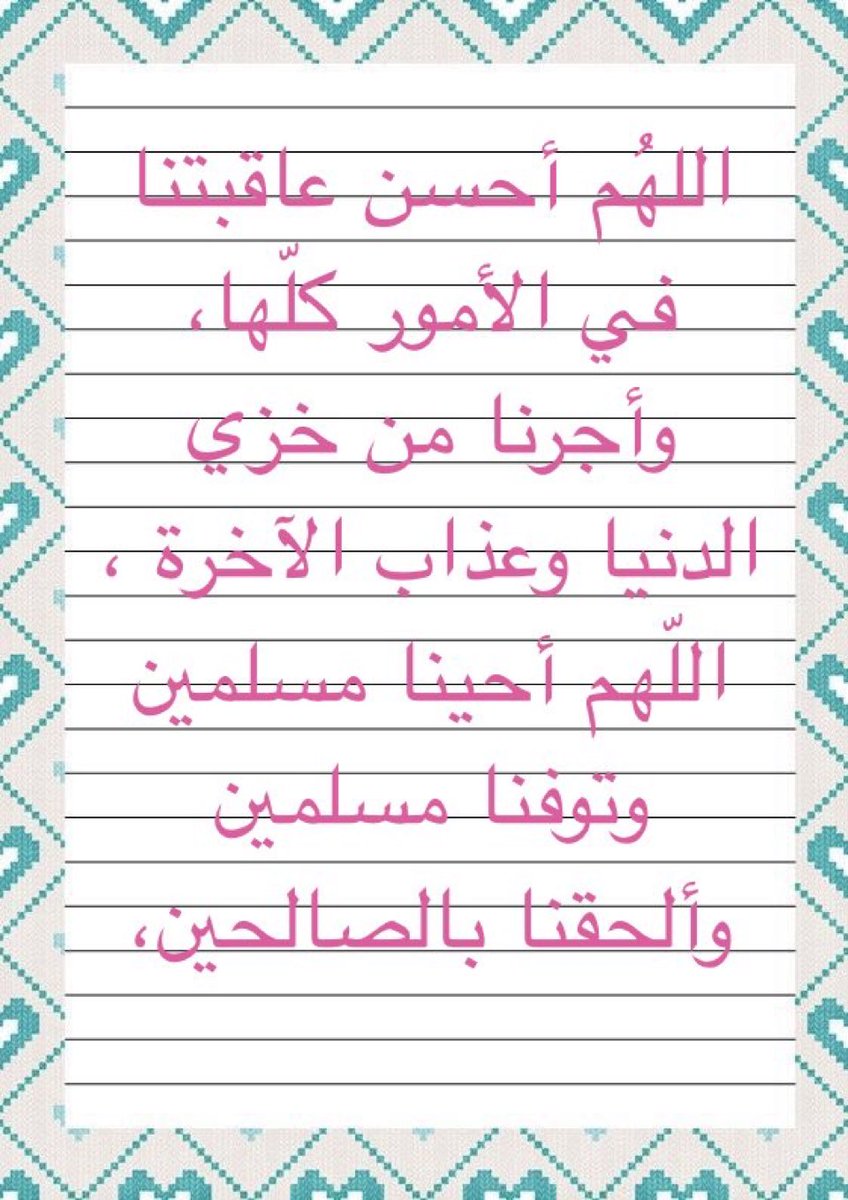 اللهُم أحسن عاقبتنا
في الأمور كلّها،
وأجرنا من خزي
الدنيا وعذاب الآخرة ،
اللّهم أحينا مسلمين
وتوفنا مسلمين
وألحقنا بالصالحين،